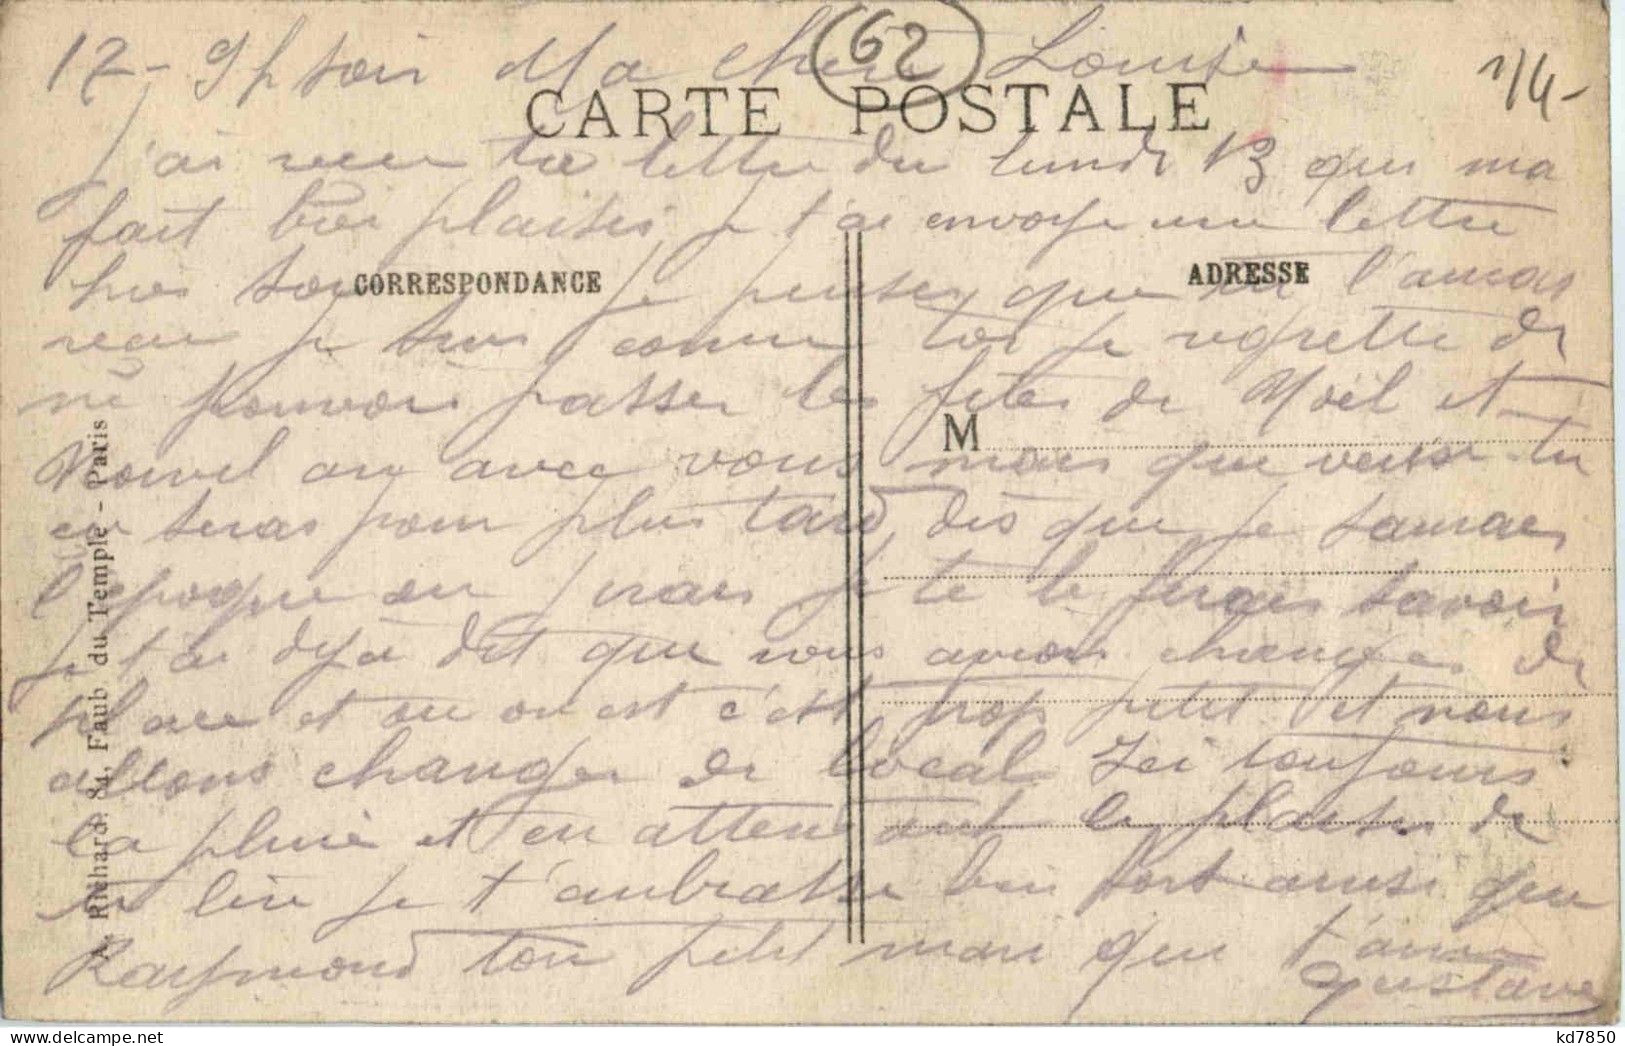 62
1/4-
17 - 9h soir Ma chere Louise
CARTE POSTALE
j'ai recu ta lettre du lundi 13 qui ma
fait bien plaisir, je t'ai envoye une lettre
hier soir je penser que tu l'auras
CORRESPONDANCE
ADRESSE
recu je suis comme toi je regrette de
ne pouvoir passer les fetes de Noël et
M
Nouvel an avec vous mais que veux-tu
ce seras pour plus tard, dès que je saurais
l'epoque ou j'irais je te le ferais savoir
je t'ai deja dit que nous avions changer de
place et ou on est c'est trop petit et nous
allons changer de local Ici toujours
la pluie et en attend le plaisir de
te lire je t'embrasse bien fort ainsi que
Raymond ton petit mari qui t'aime
Gustave
A. Richard. 84, Faub du Temple - Paris
kd7850